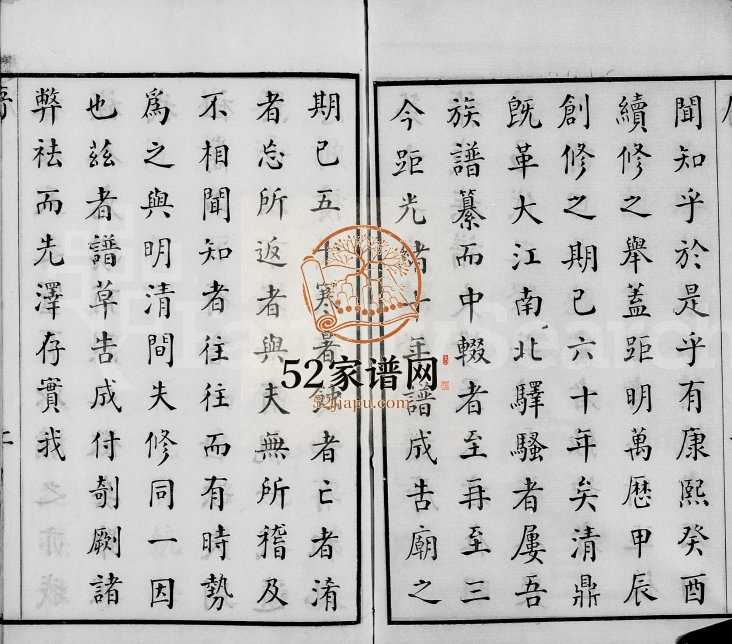 聞知乎於是乎有康熙癸酉
續修之舉蓋距明萬歷甲辰
創修之期已六十年矣清鼎
既革大江南北驛騷者屢吾
族譜纂而中輟者至再至三
今距光緒年譜成告廟之
期已五寒暑者亡者淆
者忘所返者與夫無所稽及
不相聞知者往往而有時勢
爲之與明清間失修同一因
也茲者譜草告成付剞劂諸
弊祛而先澤存實我
52家谱网
jiapu.com